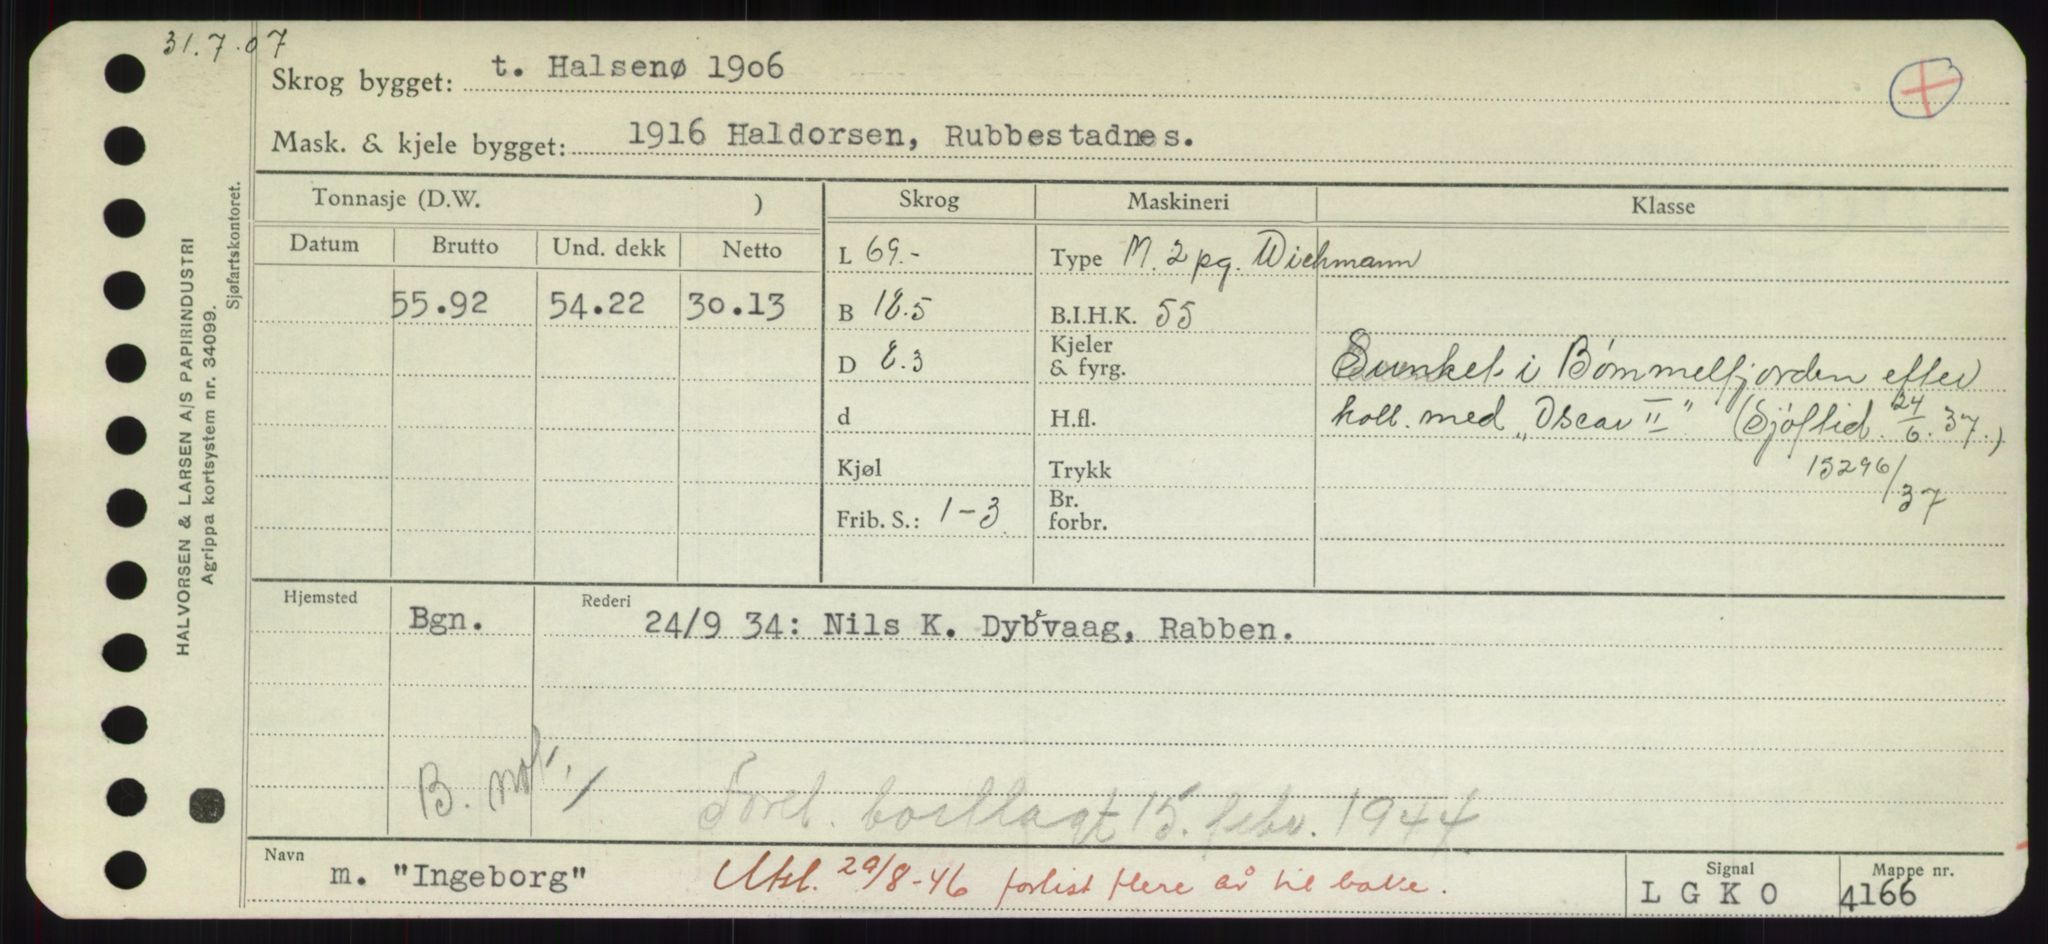 31.7.07
Skrog bygget: t. Halsenø 1906
Mask. & kjele bygget: 1916 Haldorsen, Rubbestadnes.
HALVORSEN & LARSEN A/S PAPIRINDUSTRI
Agrippa kortsystem nr. 34099.
Sjøfartskontoret.
Tonnasje (D.W. ) Skrog Maskineri Klasse
Datum Brutto Und. dekk Netto
L 69.- Type M. 2 pg. Wichmann
55.92 54.22 30.13 B 18.5 B.I.H.K. 55
D 8.3 Kjeler & fyrg. Sunket i Bømmelfjorden efter
d H.fl. koll. med „Oscar II" (Sjøftid. 24/6.37.)
Kjøl Trykk 15296/37
Frib. S.: 1-3 Br. forbr.
Hjemsted Bgn. Rederi 24/9 34: Nils K. Dybvaag, Rabben.
B. not.
Forel. bortlagt 15. febr. 1944
Navn m. "Ingeborg" Utsl. 29/8-46 forlist flere år tilbake.
Signal L G K O Mappe nr. 4166